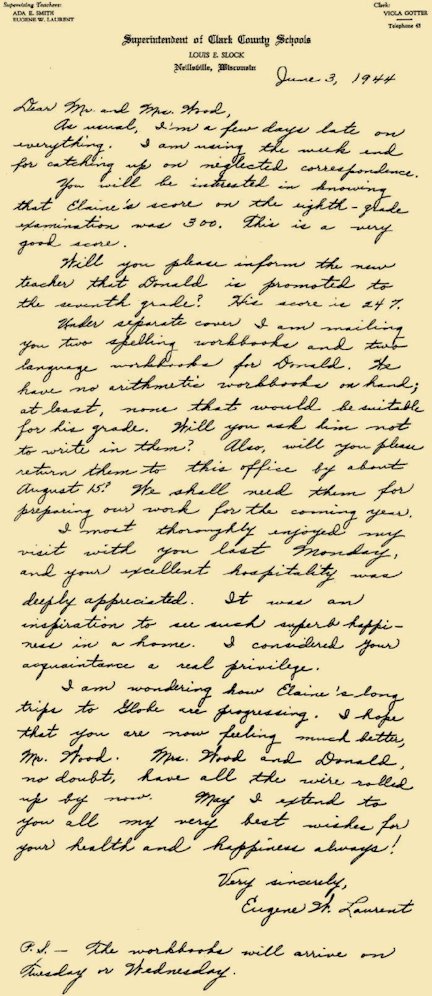 Supervising Teachers:
ADA E. SMITH
EUGENE W. LAURENT
Clerk:
VIOLA GOTTER
Telephone 43
Superintendent of Clark County Schools
LOUIS E. SLOCK
Neillsville, Wisconsin
June 3, 1944
Dear Mr. and Mrs. Wood,
As usual, I'm a few days late on
everything. I am using the week end
for catching up on neglected correspondence.
You will be intrested in knowing
that Elaine's score on the eighth-grade
examination was 300. This is a very
good score.
Will you please inform the new
teacher that Donald is promoted to
the seventh grade? His score is 247.
Under separate cover I am mailing
you two spelling workbooks and two
language workbooks for Donald. We
have no arithmetic workbooks on hand;
at least, none that would be suitable
for his grade. Will you ask him not
to write in them? Also, will you please
return them to this office by about
August 15? We shall need them for
preparing our work for the coming year.
I most thoroughly enjoyed my
visit with you last Monday,
and your excellent hospitality was
deeply appreciated. It was an
inspiration to see such superb happi-
ness in a home. I considered your
acquaintance a real privilege.
I am wondering how Elaine's long
trips to Globe are progressing. I hope
that you are now feeling much better,
Mr. Wood. Mrs. Wood and Donald,
no doubt, have all the wire rolled
up by now. May I extend to
you all my very best wishes for
your health and happiness always!
Very sincerely,
Eugene W. Laurent
P.S. — The workbooks will arrive on
Tuesday or Wednesday.